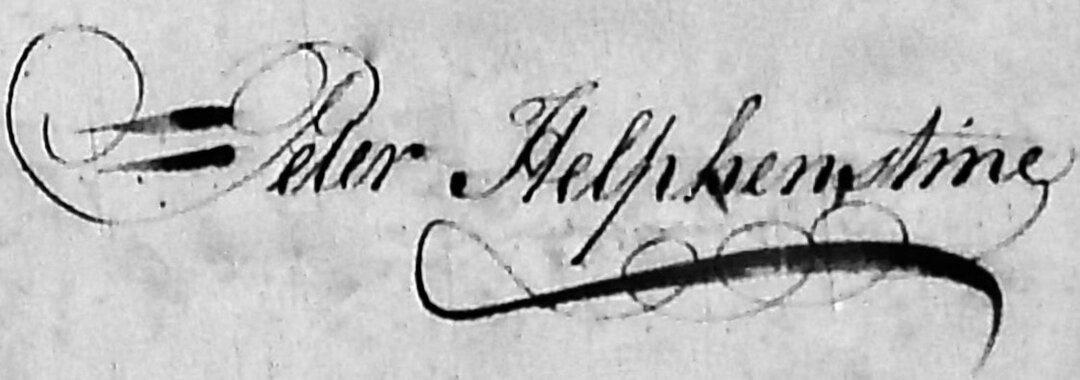 Peter Helphenstine